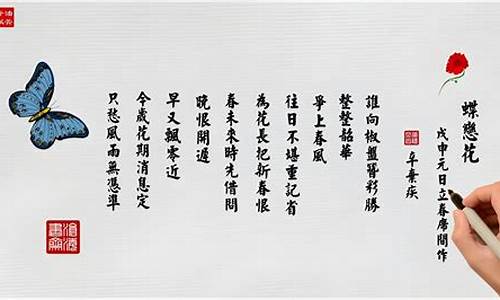 蝶戀花
戊申元日立春席間作
辛棄疾
誰向椒盤簪彩勝
整整韶華
爭上春風
往日不堪重記省
為花長把新春恨
春未來時先借問
晚恨開遲
早又飄零近
今歲花期消息定
只愁風雨無憑準